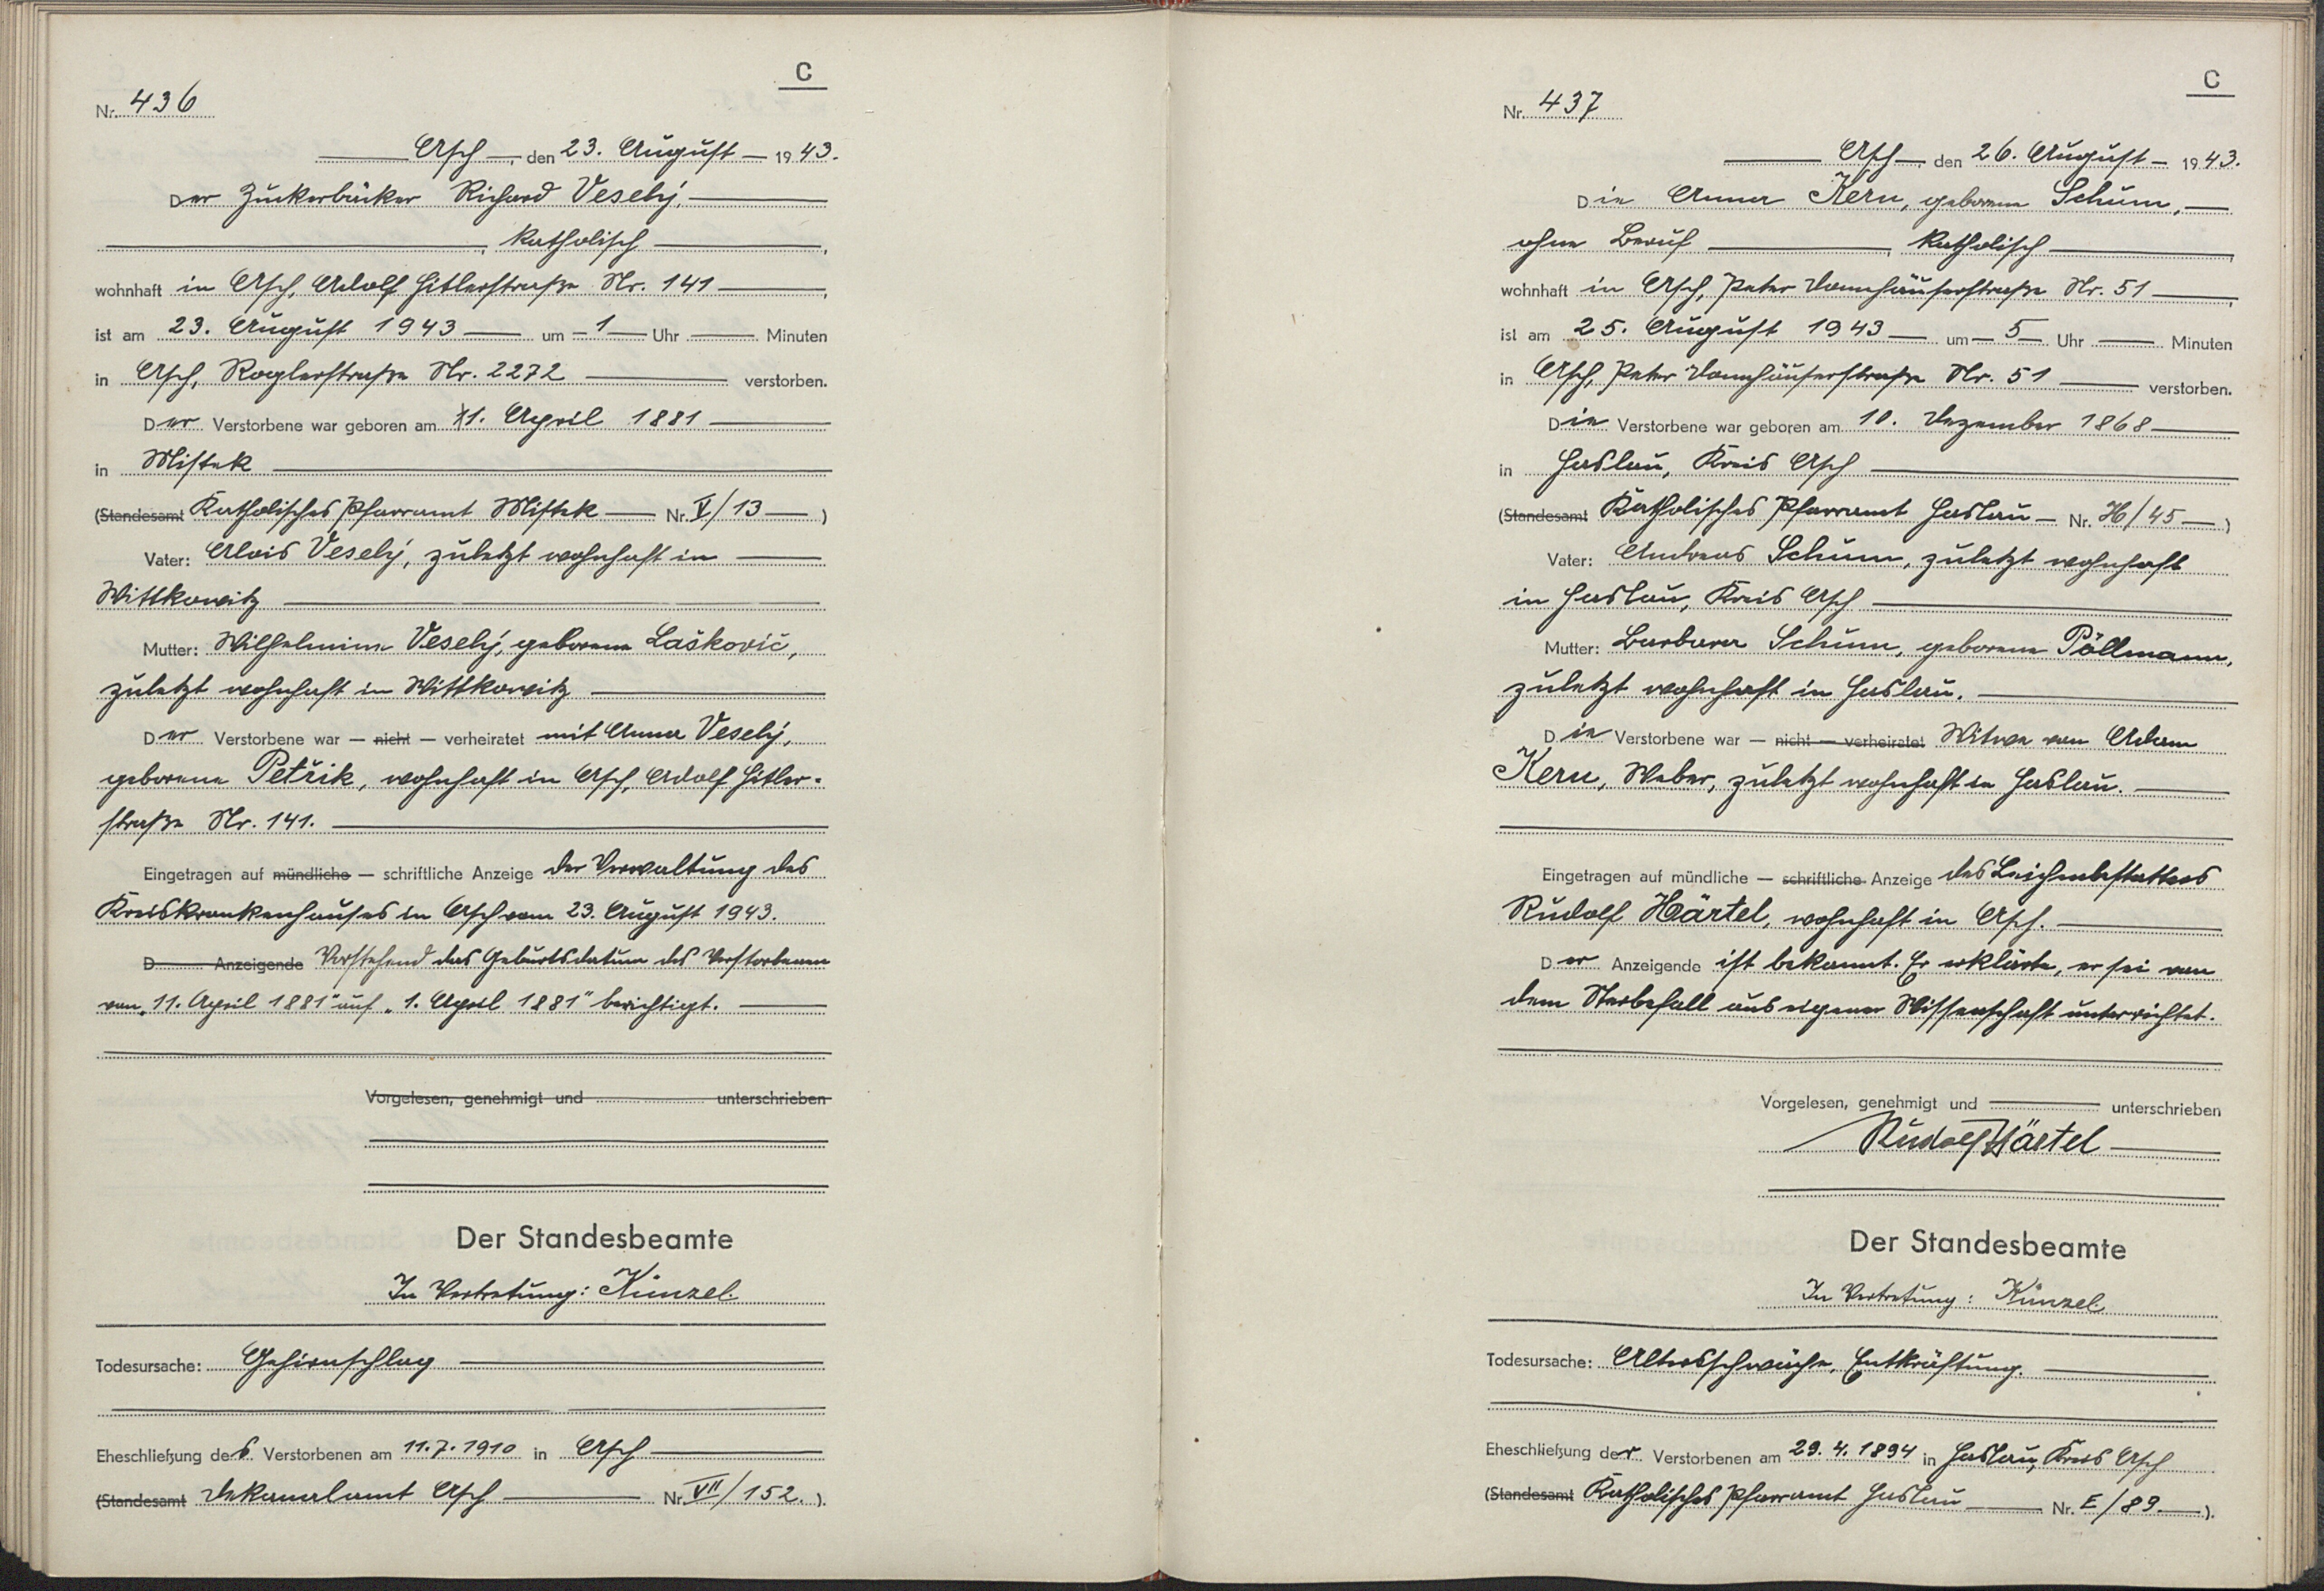 C
Nr. 436
Asch, den 23. August 1943.
Der Zuckerbäcker Richard Veselý,
katholisch,
wohnhaft in Asch, Adolf Hitlerstraße Nr. 141,
ist am 23. August 1943 um 1 Uhr Minuten
in Asch, Roglerstraße Nr. 2272 verstorben.
Der Verstorbene war geboren am 11. April 1881
in Mistek
(Standesamt Katholisches Pfarramt Mistek Nr. V/13)
Vater: Alois Veselý, zuletzt wohnhaft in
Wittkowitz
Mutter: Wilhelmine Veselý, geborene Laškovič,
zuletzt wohnhaft in Wittkowitz
Der Verstorbene war — nicht — verheiratet mit Anna Veselý,
geborene Petřik, wohnhaft in Asch, Adolf Hitler-
straße Nr. 141.
Eingetragen auf mündliche — schriftliche Anzeige der Verwaltung des
Kreiskrankenhauses in Asch vom 23. August 1943.
D Anzeigende Vorstehend das Geburtsdatum des Verstorbenen
von „11. April 1881" auf „1. April 1881" berichtigt.
Vorgelesen, genehmigt und unterschrieben
Der Standesbeamte
In Vertretung: Künzel.
Todesursache: Gehirnschlag
Eheschließung des Verstorbenen am 11.7.1910 in Asch
(Standesamt Dekanalamt Asch Nr. VII/152.).
C
Nr. 437
Asch, den 26. August 1943.
Die Anna Kern, geborene Schum,
ohne Beruf, katholisch,
wohnhaft in Asch, Peter Donnhäuserstraße Nr. 51,
ist am 25. August 1943 um 5 Uhr Minuten
in Asch, Peter Donnhäuserstraße Nr. 51 verstorben.
Die Verstorbene war geboren am 10. Dezember 1868
in Haslau, Kreis Asch
(Standesamt Katholisches Pfarramt Haslau Nr. H/45)
Vater: Andreas Schum, zuletzt wohnhaft
in Haslau, Kreis Asch
Mutter: Barbara Schum, geborene Pöllmann,
zuletzt wohnhaft in Haslau.
Die Verstorbene war — nicht — verheiratet Witwe von Adam
Kern, Weber, zuletzt wohnhaft in Haslau.
Eingetragen auf mündliche — schriftliche Anzeige des Leichenbestatters
Rudolf Härtel, wohnhaft in Asch.
Der Anzeigende ist bekannt. Er erklärte, er sei von
dem Sterbefall aus eigener Wissenschaft unterrichtet.
Vorgelesen, genehmigt und unterschrieben
Rudolf Härtel
Der Standesbeamte
In Vertretung: Künzel.
Todesursache: Altersschwäche, Entkräftung.
Eheschließung der Verstorbenen am 29.4.1894 in Haslau, Kreis Asch
(Standesamt Katholisches Pfarramt Haslau Nr. E/89).